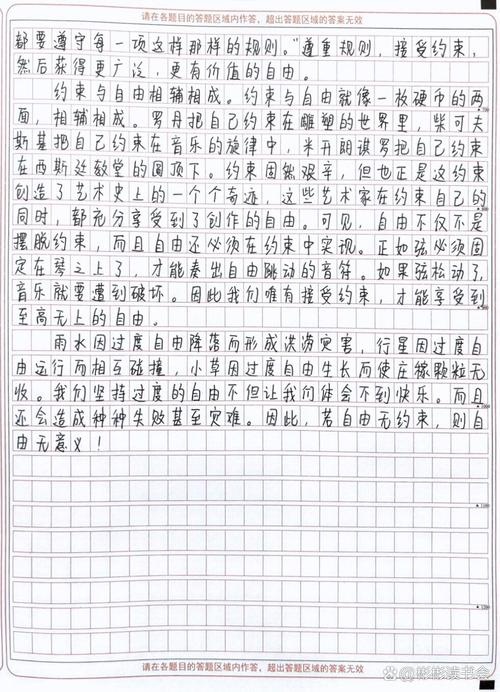 请在各题目的答题区域内作答，超出答题区域的答案无效
都要遵守每一项这样那样的规则。"遵重规则，接受约束，
然后获得更广泛，更有价值的自由。
约束与自由相辅相成。约束与自由就像一枚硬币的两
面，相辅相成。罗丹把自己约束在雕塑的世界里，柴可夫
斯基把自己约束在音乐的旋律中，米开朗谟罗把自己约束
在西斯廷教堂的圆顶下。约束固然艰辛，但也正是这约束
创造了艺术史上的一个个奇迹，这些艺术家在约束自己的
同时，都充分享受到了创作的自由。可见，自由不仅不是
摆脱约束，而且自由还必须在约束中实现。正如弦必须固
定在琴之上了，才能奏出自由跳动的音符。如果弦松动了，
音乐就要遭到破坏。因此我们唯有接受约束，才能享受到
至高无上的自由。
雨水因过度自由降落而形成洪涝灾害，行星因过度自
由运行而相互碰撞，小草因过度自由生长而使庄稼颗粒无
收。我们坚持过度的自由不但让我们体会不到快乐。而且
还会造成种种失败甚至灾难。因此，若自由无约束，则自
由无意义！
请在各题目的答题区域内作答，超出答题区域的答案无效